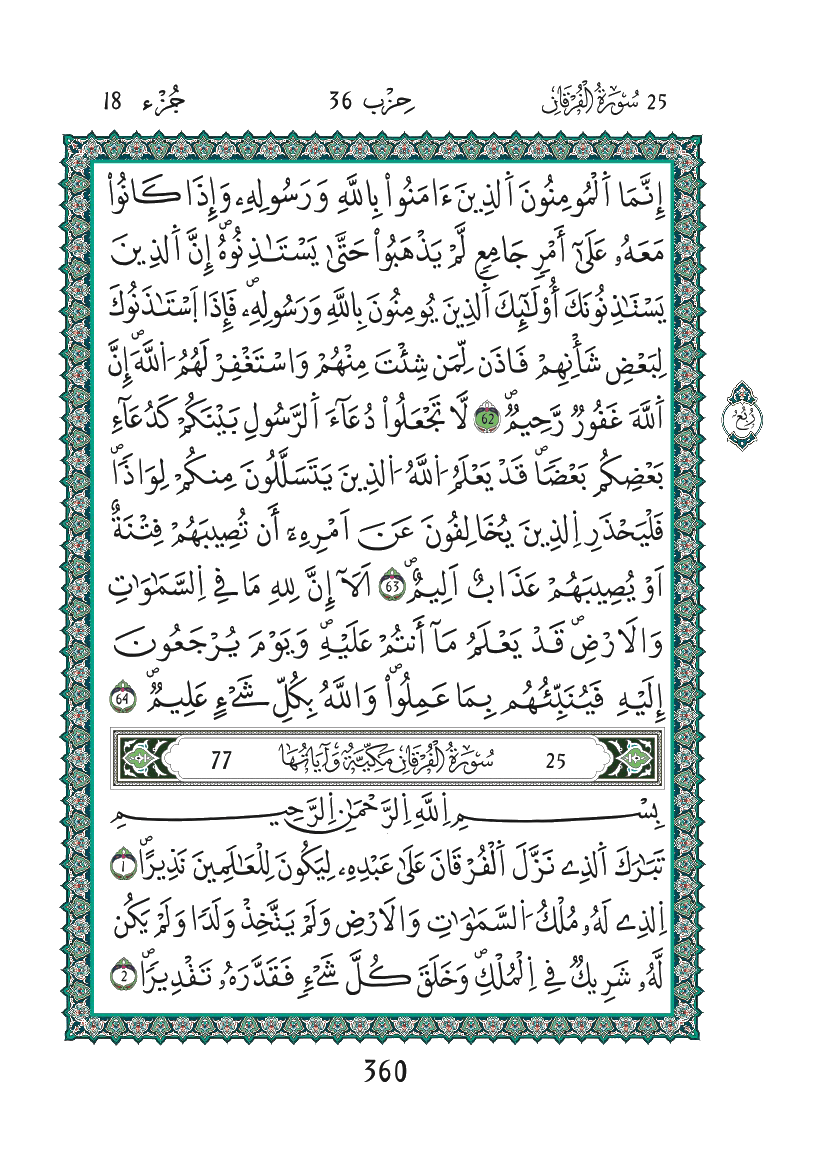 25 سُورَةُ الْفُرْقَانِ
حِزْب 36
جُزْء 18
إِنَّمَا اَ۬لْمُومِنُونَ اَ۬لذِينَ ءَامَنُواْ بِاللَّهِ وَرَسُولِهِۦ وَإِذَا كَانُواْ
مَعَهُۥ عَلَىٰٓ أَمْرٖ جَامِعٖ لَّمْ يَذْهَبُواْ حَتَّىٰ يَسْتَٰذِنُوهُۖ إِنَّ اَ۬لذِينَ
يَسْتَٰذِنُونَكَ أُوْلَٰٓئِكَ اَ۬لذِينَ يُومِنُونَ بِاللَّهِ وَرَسُولِهِۦۖ فَإِذَا اَ۪سْتَٰذَنُوكَ
لِبَعْضِ شَأْنِهِمْ فَاذَن لِّمَن شِئْتَ مِنْهُمْ وَاسْتَغْفِرْ لَهُمُ اُ۬للَّهَۖ إِنَّ
اَ۬للَّهَ غَفُورٞ رَّحِيمٞۖ 62 لَّا تَجْعَلُواْ دُعَآءَ اَ۬لرَّسُولِ بَيْنَكُمْ كَدُعَآءِ
رُبُع
بَعْضِكُم بَعْضاٗۖ قَدْ يَعْلَمُ اُ۬للَّهُ اُ۬لذِينَ يَتَسَلَّلُونَ مِنكُمْ لِوَاذاٗۖ
فَلْيَحْذَرِ اِ۬لذِينَ يُخَالِفُونَ عَنَ اَمْرِهِۦٓ أَن تُصِيبَهُمْ فِتْنَةٌ
اَوْ يُصِيبَهُمْ عَذَابٌ اَلِيمٌۖ 63 اَلَآ إِنَّ لِلهِ مَا فِے اِ۬لسَّمَٰوَٰتِ
وَالَارْضِۖ قَدْ يَعْلَمُ مَآ أَنتُمْ عَلَيْهِۖ وَيَوْمَ يُرْجَعُونَ
إِلَيْهِ فَيُنَبِّئُهُم بِمَا عَمِلُواْۖ وَاللَّهُ بِكُلِّ شَےْءٍ عَلِيمٞۖ 64
25 سُورَةُ الْفُرْقَانِ مَكِيَّةٌ وَآيَاتُهَا 77
بِسْمِ اِ۬للَّهِ اِ۬لرَّحْمَٰنِ اِ۬لرَّحِيمِ
تَبَٰرَكَ اَ۬لذِے نَزَّلَ اَ۬لْفُرْقَانَ عَلَىٰ عَبْدِهِۦ لِيَكُونَ لِلْعَٰلَمِينَ نَذِيراًۖ 1
اِ۬لذِے لَهُۥ مُلْكُ اُ۬لسَّمَٰوَٰتِ وَالَارْضِ وَلَمْ يَتَّخِذْ وَلَداٗ وَلَمْ يَكُن
لَّهُۥ شَرِيكٞ فِے اِ۬لْمُلْكِۖ وَخَلَقَ كُلَّ شَےْءٖ فَقَدَّرَهُۥ تَقْدِيراٗۖ 2
360